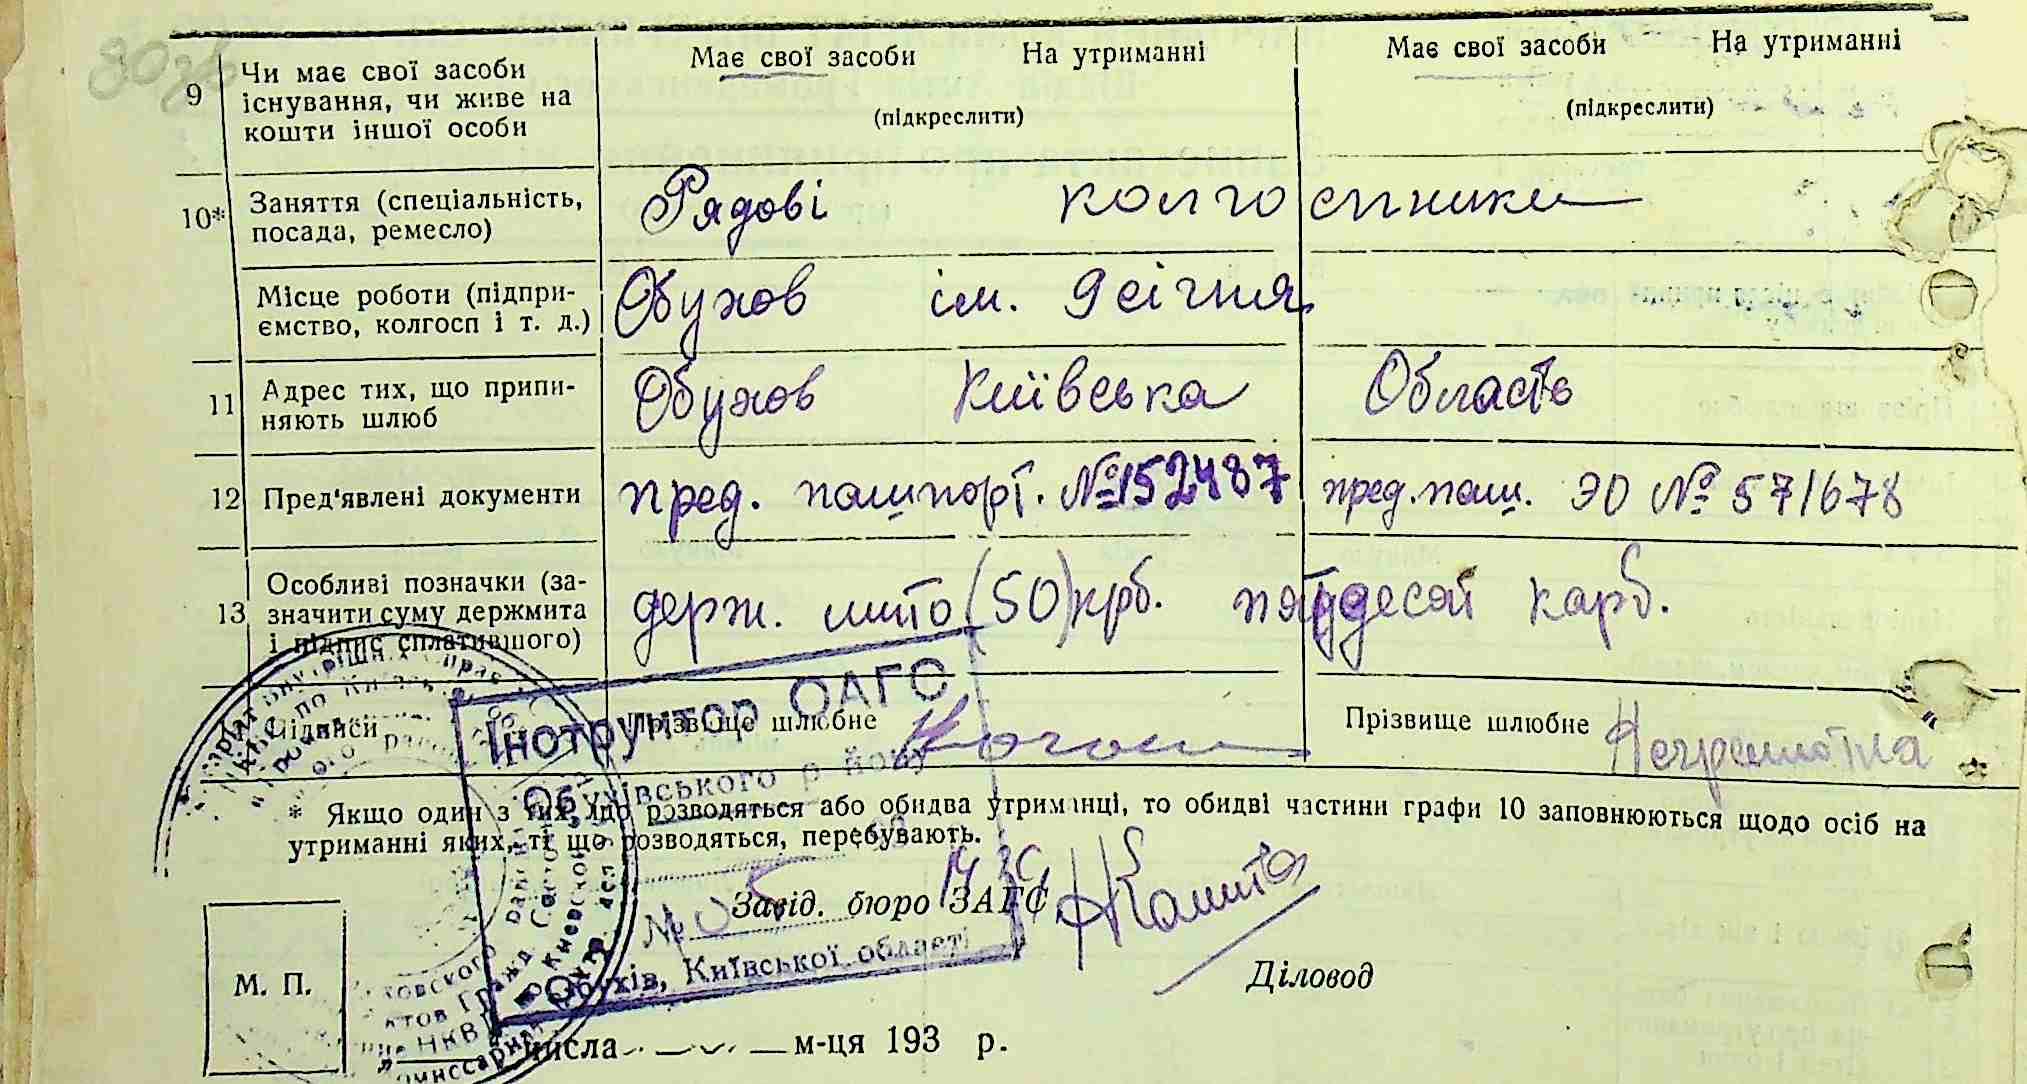 9 Чи має свої засоби існування, чи живе на кошти іншої особи
Має свої засоби На утриманні
(підкреслити)
Має свої засоби На утриманні
(підкреслити)
10* Заняття (спеціальність, посада, ремесло)
Рядові колгоспники
Місце роботи (підприємство, колгосп і т. д.)
Обухов ім. 9 січня
11 Адрес тих, що припиняють шлюб
Обухов Київська Область
12 Пред'явлені документи
пред. пашпорт. № 152487
пред. паш. ЭО № 571678
13 Особливі позначки (зазначити суму держмита і підпис сплатившого)
держ. мито (50) крб. пятдесят карб.
Підписи
Прізвище шлюбне
Прізвище шлюбне Неграмотна
* Якщо один з тих, що розводяться або обидва утриманці, то обидві частини графи 10 заповнюються щодо осіб на
утриманні яких, ті що розводяться, перебувають.
Інструктор ОАГС
Обухівського району
№
Обухів, Київської області
Завід. бюро ЗАГС
Діловод
М. П.
числа м-ця 193 р.